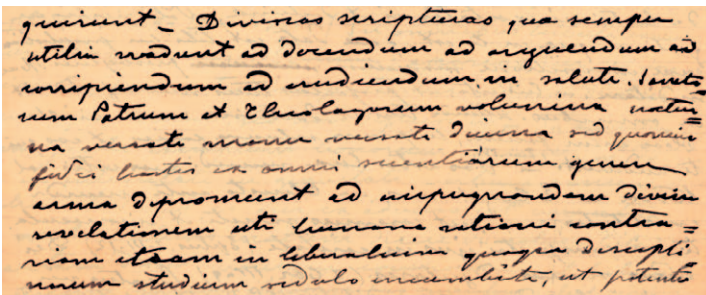 quirunt_ Divinas scripturas quae semper
utilia evadunt ad docendum ad arguendum ad
corripiendum ad erudiendum in salute. Sancto
rum Patrum et Theologorum volumina noctur=
na versate manu versate diurna sed quoniam
fidei hostes ex omni scientiarum genere
arma depromunt ad impugnandam divin
revelationem uti humana rationi contra=
riam etiam in liberalium quoque discipli=
narum studium sedulo incumbite, ut potenti